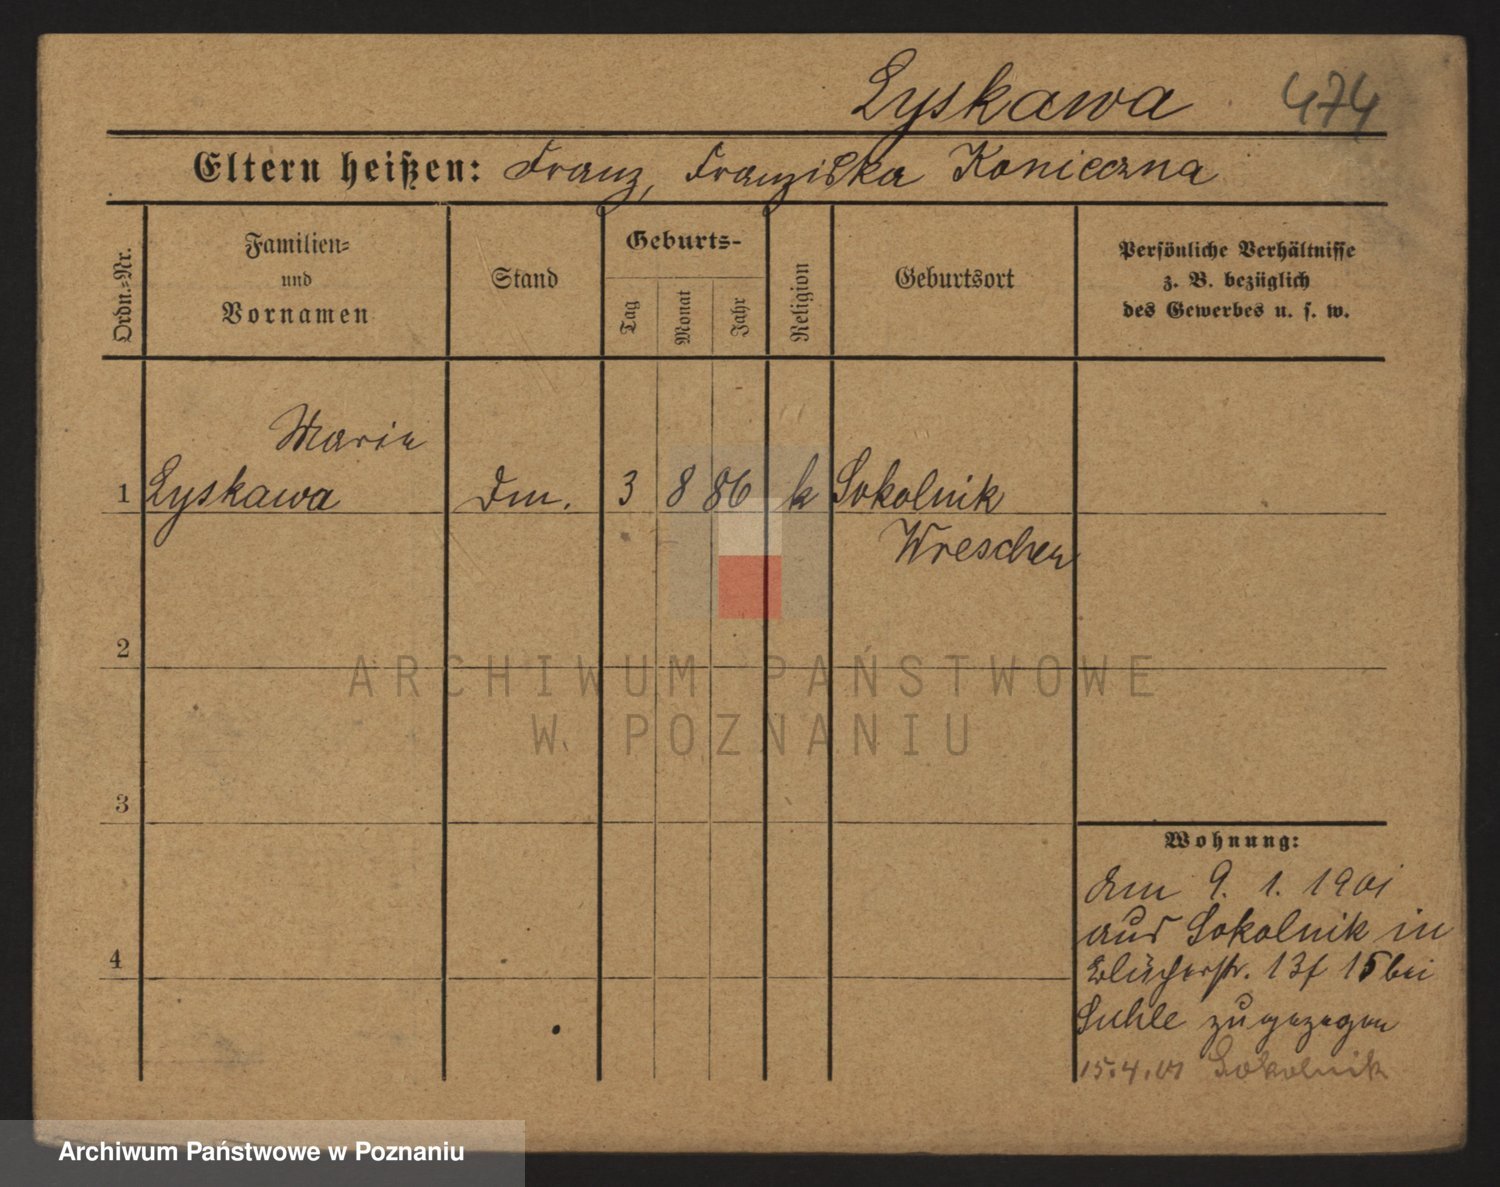 Lyskawa 474
Eltern heißen: Franz, Franziska Konieczna
Ordn.=Nr.
Familien=
und
Vornamen
Stand
Geburts-
Tag
Monat
Jahr
Religion
Geburtsort
Persönliche Verhältnisse
z. B. bezüglich
des Gewerbes u. s. w.
Marie
1 Lyskawa Dm. 3 8 86 k Sokolnik
Wreschen
2
3
4
Wohnung:
Am 9. 1. 1901
aus Sokolnik in
Blücherstr. 13 15 bei
Suhle zugezogen
15.4.01 Sokolnik
ARCHIWUM PAŃSTWOWE
W POZNANIU
Archiwum Państwowe w Poznaniu